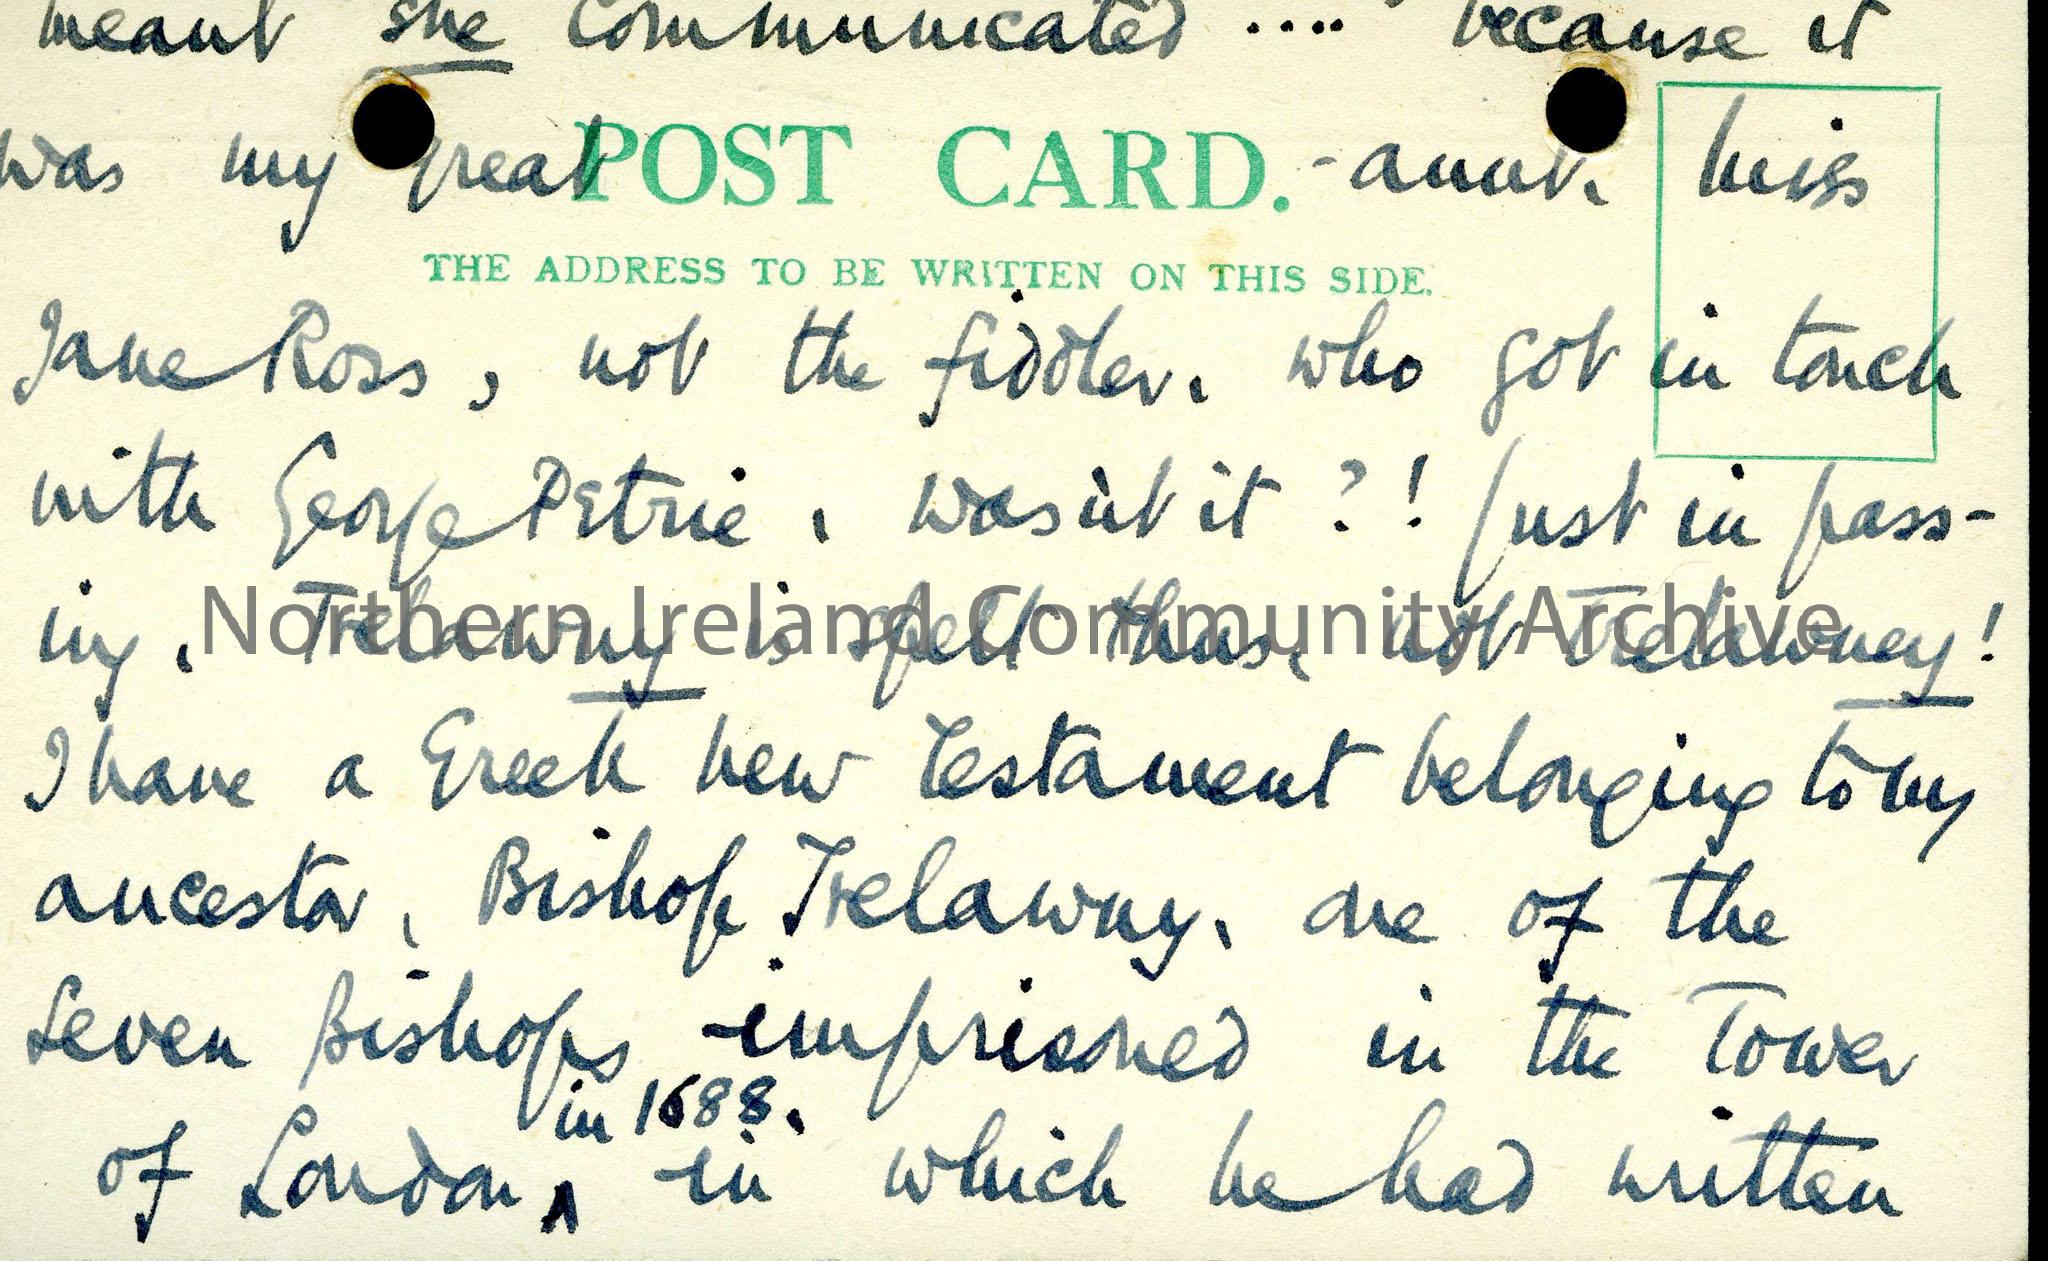 meant she communicated .... because it
was my great -aunt, Miss
POST CARD.
THE ADDRESS TO BE WRITTEN ON THIS SIDE.
Jane Ross, not the fiddler, who got in touch
with George Petrie, wasn't it?! Just in pass-
ing, Trelawny is spelt thus, not Trelawney!
Northern Ireland Community Archive
I have a Greek New Testament belonging to my
ancestor, Bishop Trelawny, one of the
Seven Bishops imprisoned in the Tower
in 1688,
of London ∧ in which he had written